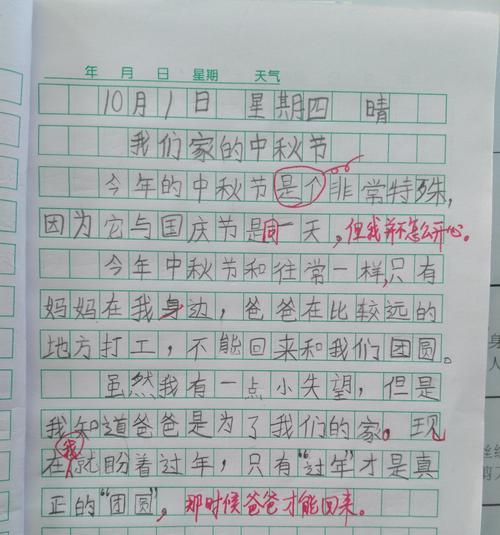 年 月 日 星期 天气
10月1日 星期四 晴
我们家的中秋节
今年的中秋节是个非常特殊,
因为它与国庆节是同一天,但我并不怎么开心。
今年中秋节和往常一样,只有
妈妈在我身边,爸爸在比较远的
地方打工,不能回来和我们团圆。
虽然我有一点小失望,但是
我知道爸爸是为了我们的家。现
在我就盼着过年,只有“过年”才是真
正的“团圆”,那时候爸爸才能回来。